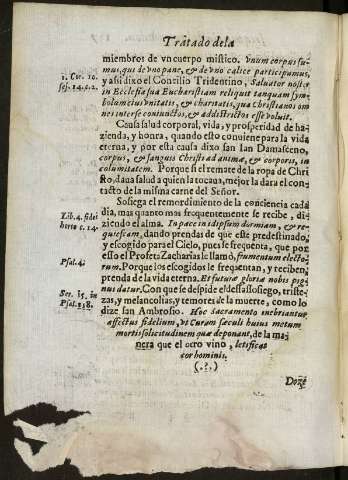 Tratado de la
miembros de vn cuerpo mistico. Vnum corpus su-
1. Cor. 10.
mus, qui de vno pane, & de vno calice participamus,
ses. 14. c. 2.
y assi dixo el Concilio Tridentino, Saluator noster
in Ecclesia sua Eucharistiam reliquit tanquam sym-
bolum eius vnitatis, & charitatis, qua Christianos om
nes inter se coniunctos, & addistrictos esse voluit.
Causa salud corporal, vida, y prosperidad de ha-
zienda, y honra, quando esto conuiene para la vida
eterna, y por esta causa dixo san Iuan Damasceno,
corpus, & sanguis Christi ad animæ, & corporis, in
columitatem. Porque si el remate de la ropa de Chri
sto, daua salud a quien la tocaua, mejor la dara el con-
tacto de la misma carne del Señor.
Sosiega el remordimiento de la conciencia cada
dia, mas quanto mas frequentemente se recibe, di-
Lib. 4. fidei
ziendo el alma. In pace in idipsum dormiam, & re-
c. 14.
quiescam, dando prendas de que està predestinado,
y escogido para el Cielo, pues se frequenta, que por
esso el Profeta Zacharias le llamò, frumentum electo-
Psal. 4.
rum. Porque los escogidos le frequentan, y reciben
prenda de la vida eterna. Et futuræ gloriæ nobis pig-
Ser. 15. in
nus datur. Con que se despide el desassosiego, triste-
Psal. 118.
zas, y melancolias, y temores de la muerte, como lo
dize san Ambrosio. Hoc Sacramento inebriantur
affectus fidelium, vt Curam sæculi huius metum
mortis solicitudinem quæ deponant, de la ma-
nera que el otro vino, lætificas
cor hominis.
(.?.)